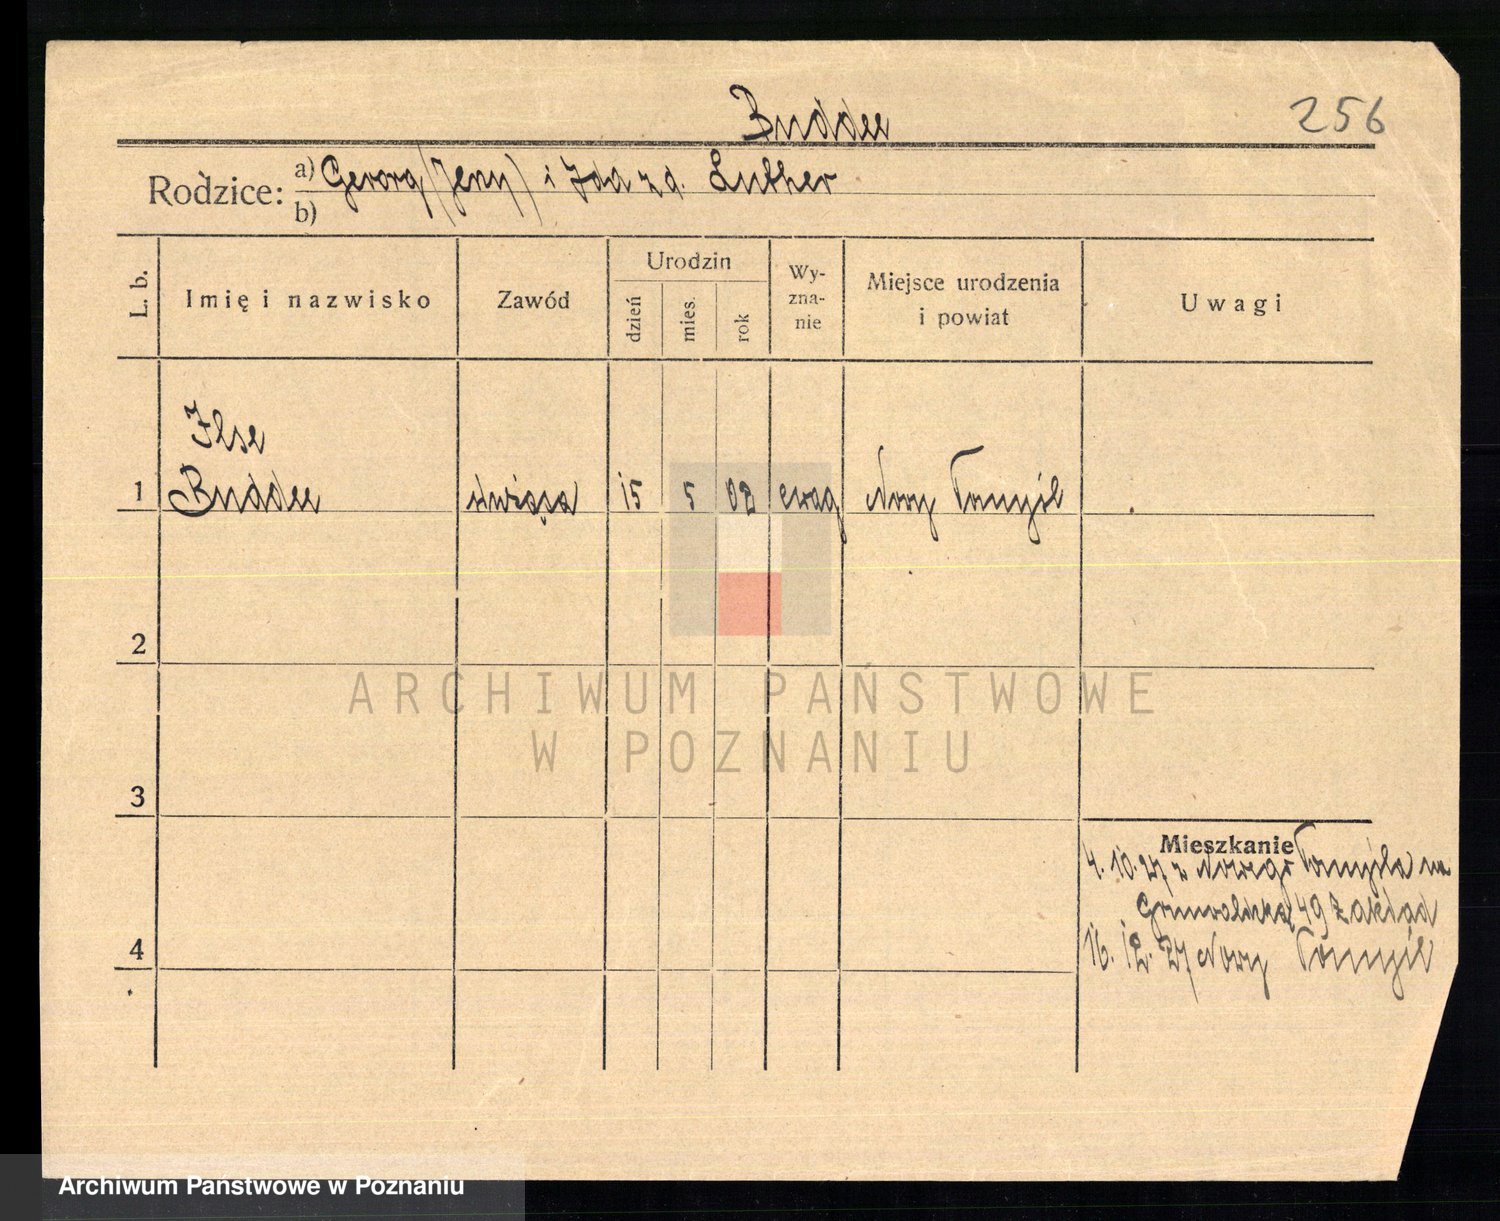 Buddee
256
Rodzice: a) Georg (Jerzy) i Ida z d. Luther
b)
L. b. Imię i nazwisko Zawód Urodzin Wy-zna-nie Miejsce urodzenia i powiat Uwagi
dzień mies. rok
Ilse
1 Buddee 15 5 02 ewag Nowy Tomyśl
2
ARCHIWUM PAŃSTWOWE
W POZNANIU
3
Mieszkanie
4. 10. 27 z Nowego Tomyśla na
Grunwaldzką 49 Zakład
4
16. 12. 27 Nowy Tomyśl
Archiwum Państwowe w Poznaniu